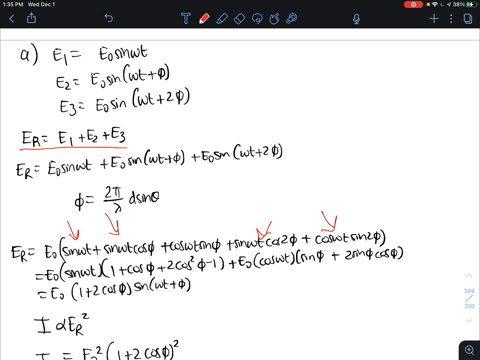 1:35 PM Wed Dec 1
38%
a) E1 = E0 sinωt
E2 = E0 sin(ωt+ϕ)
E3 = E0 sin(ωt+2ϕ)
ER = E1 + E2 + E3
ER = E0 sinωt + E0 sin(ωt+ϕ) + E0 sin(ωt+2ϕ)
ϕ = 2π/λ dsinθ
ER = E0(sinωt + sinωt cosϕ + cosωt sinϕ + sinωt cos2ϕ + cosωt sin2ϕ)
= E0(sinωt)(1 + cosϕ + 2cos²ϕ - 1) + E0(cosωt)(sinϕ + 2sinϕ cosϕ)
= E0 (1+2cosϕ) sin(ωt+ϕ)
I ∝ ER²
I = E0² (1+2cosϕ)²
348
350